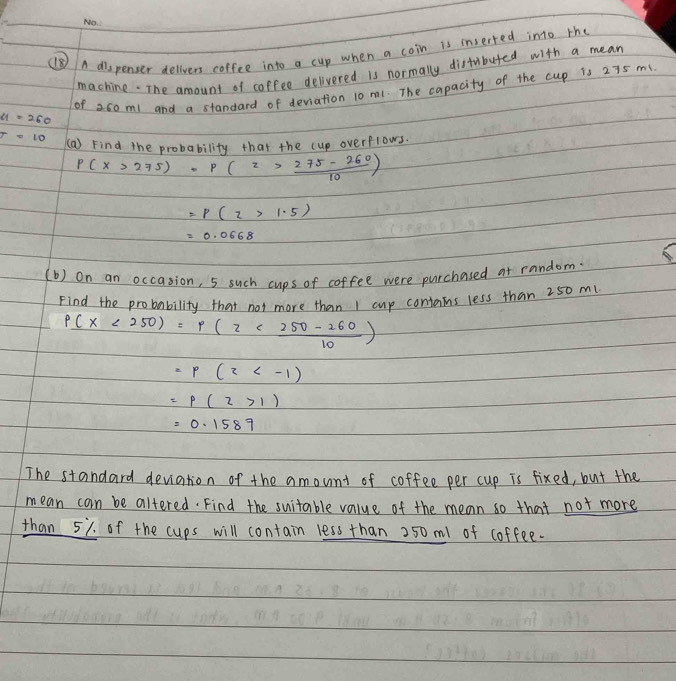 No.
(18) A dispenser delivers coffee into a cup when a coin is inserted into the
machine. The amount of coffee delivered is normally distributed with a mean
of 260 ml and a standard of deviation 10 ml. The capacity of the cup is 275 ml.
μ = 260
σ = 10
(a) Find the probability that the cup overflows.
P(X > 275) = P(Z > (275 - 260)/10)
= P(Z > 1.5)
= 0.0668
(b) On an occasion, 5 such cups of coffee were purchased at random.
Find the probability that not more than 1 cup contains less than 250 ml.
P(X < 250) = P(Z < (250 - 260)/10)
= P (Z < -1)
= P (Z > 1)
= 0.1587
The standard deviation of the amount of coffee per cup is fixed, but the
mean can be altered. Find the suitable value of the mean so that not more
than 5% of the cups will contain less than 250 ml of coffee.